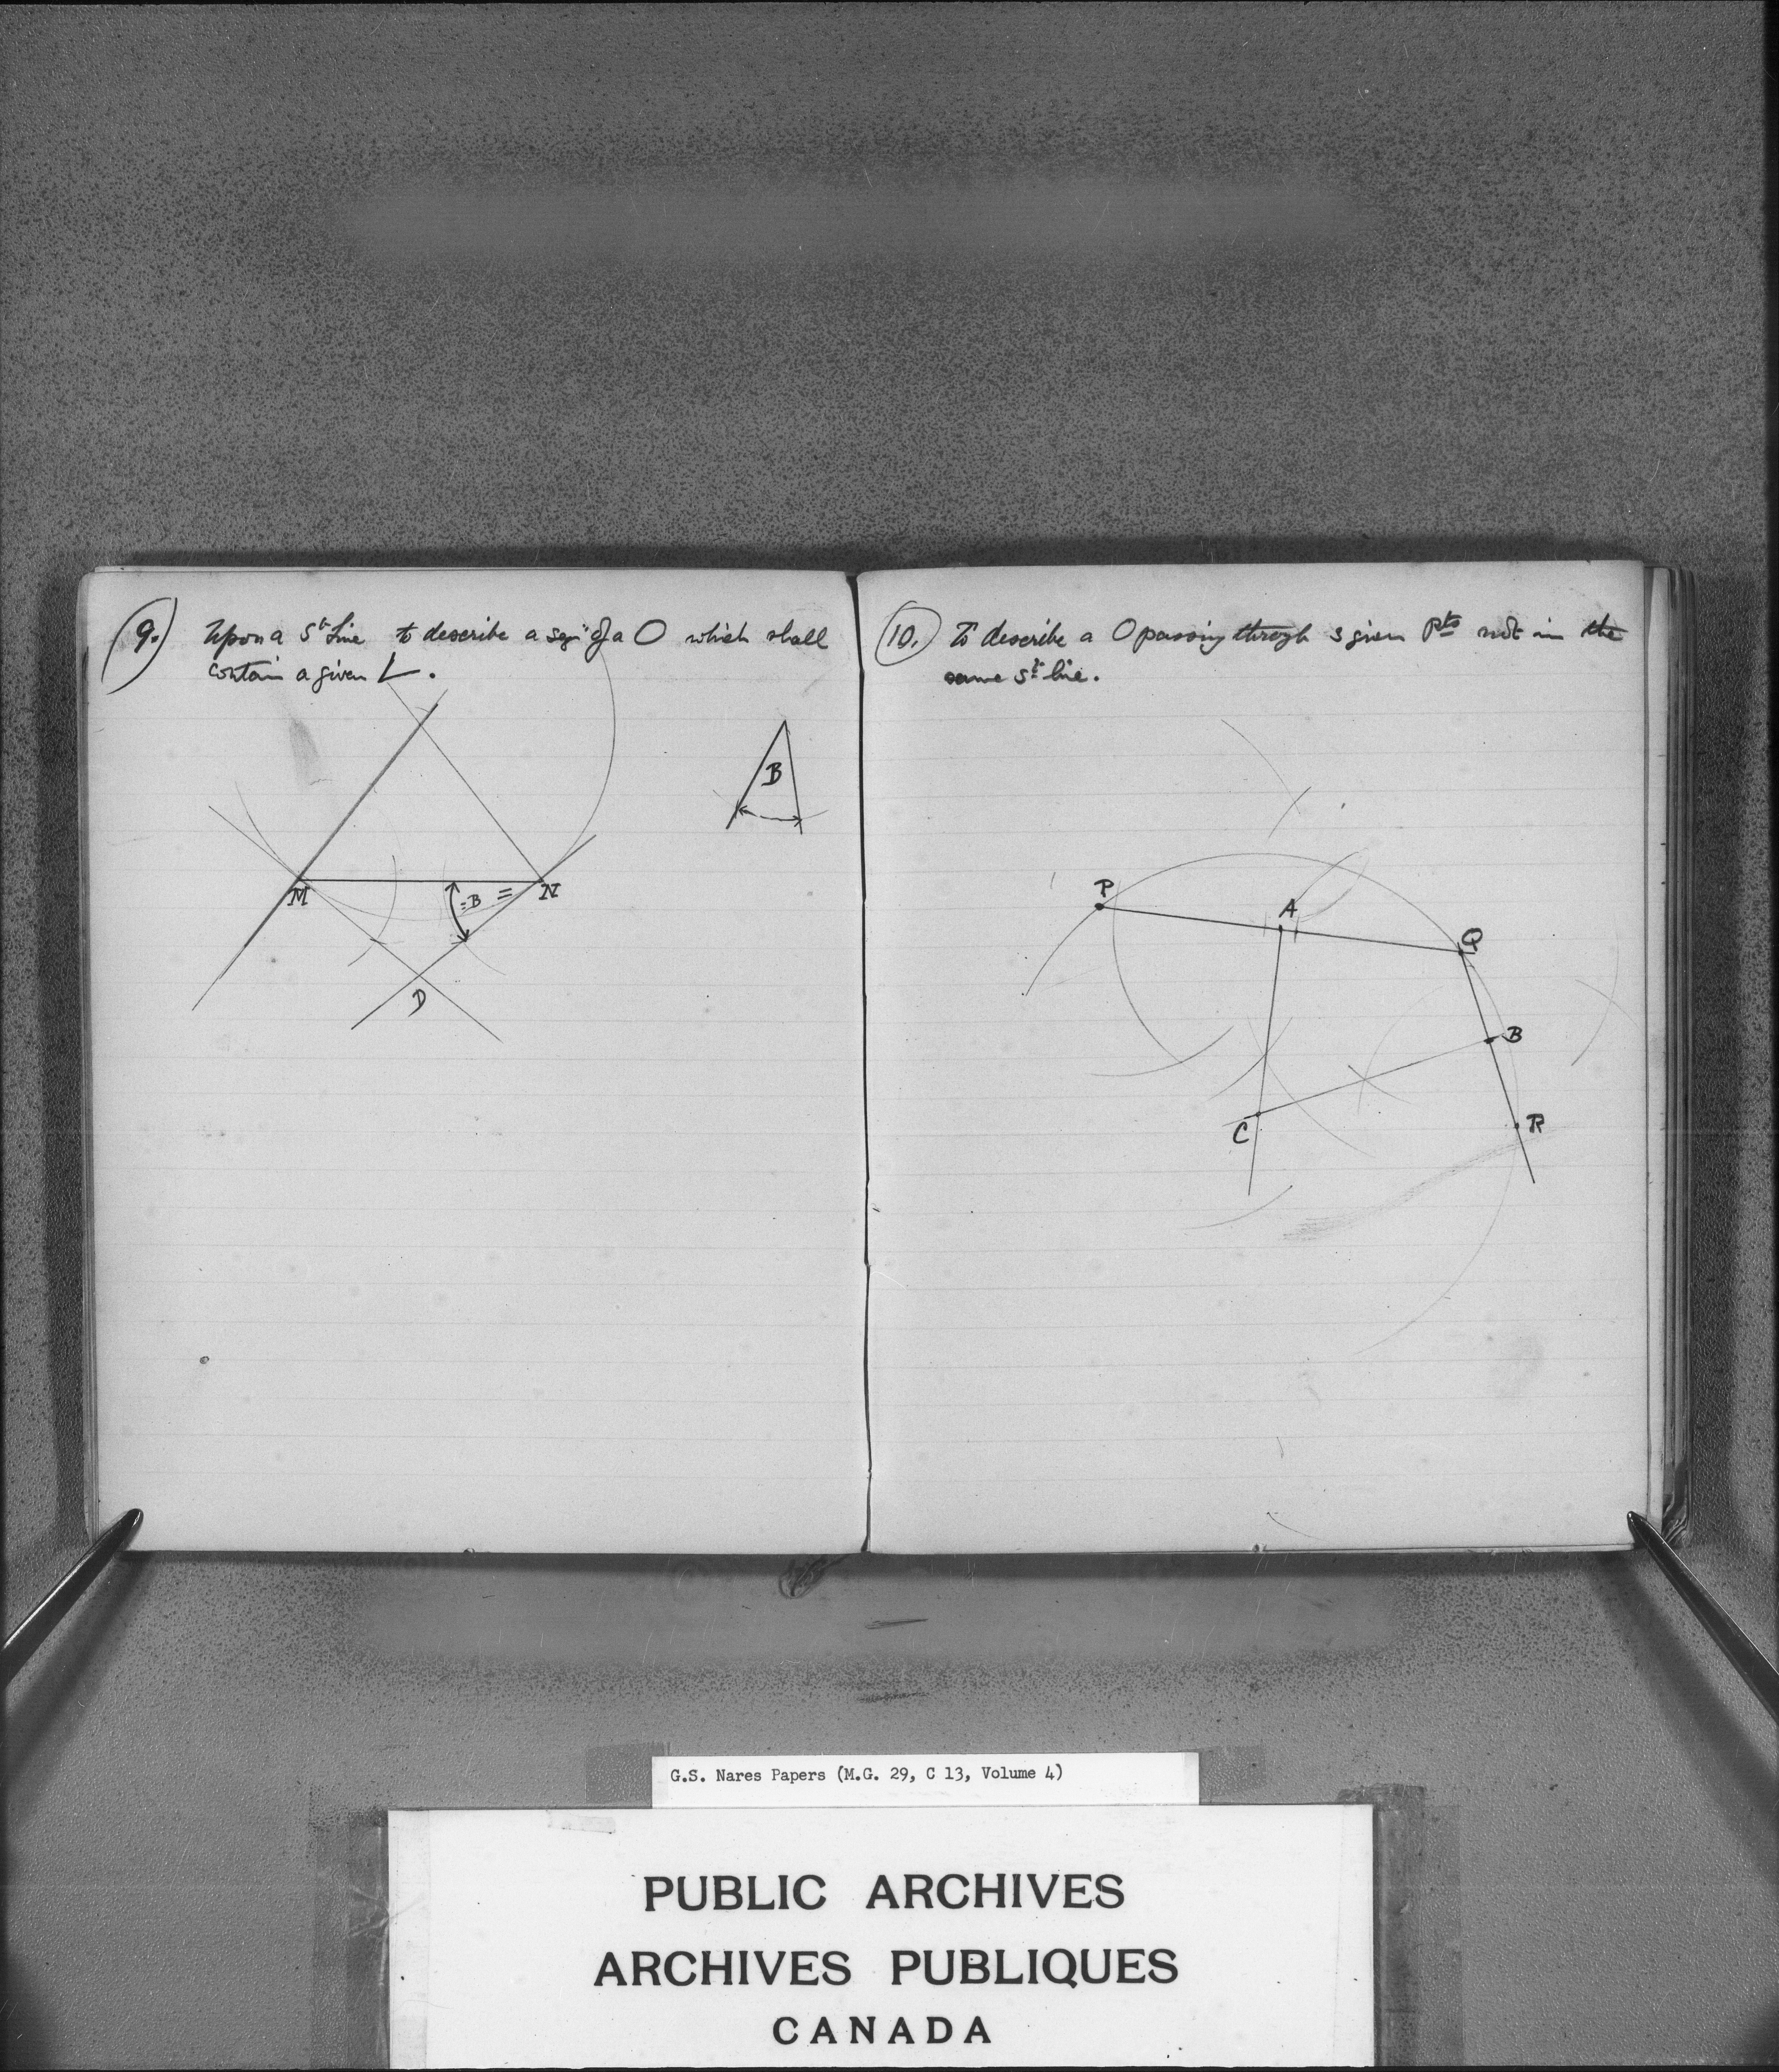 9. Upon a St Line to describe a segt of a O which shall
contain a given ∠.
B
M
=B =
N
D
10. To describe a O passing through 3 given Pts not in the
same St line.
P
A
Q
B
C
R
G.S. Nares Papers (M.G. 29, C 13, Volume 4)
PUBLIC ARCHIVES
ARCHIVES PUBLIQUES
CANADA